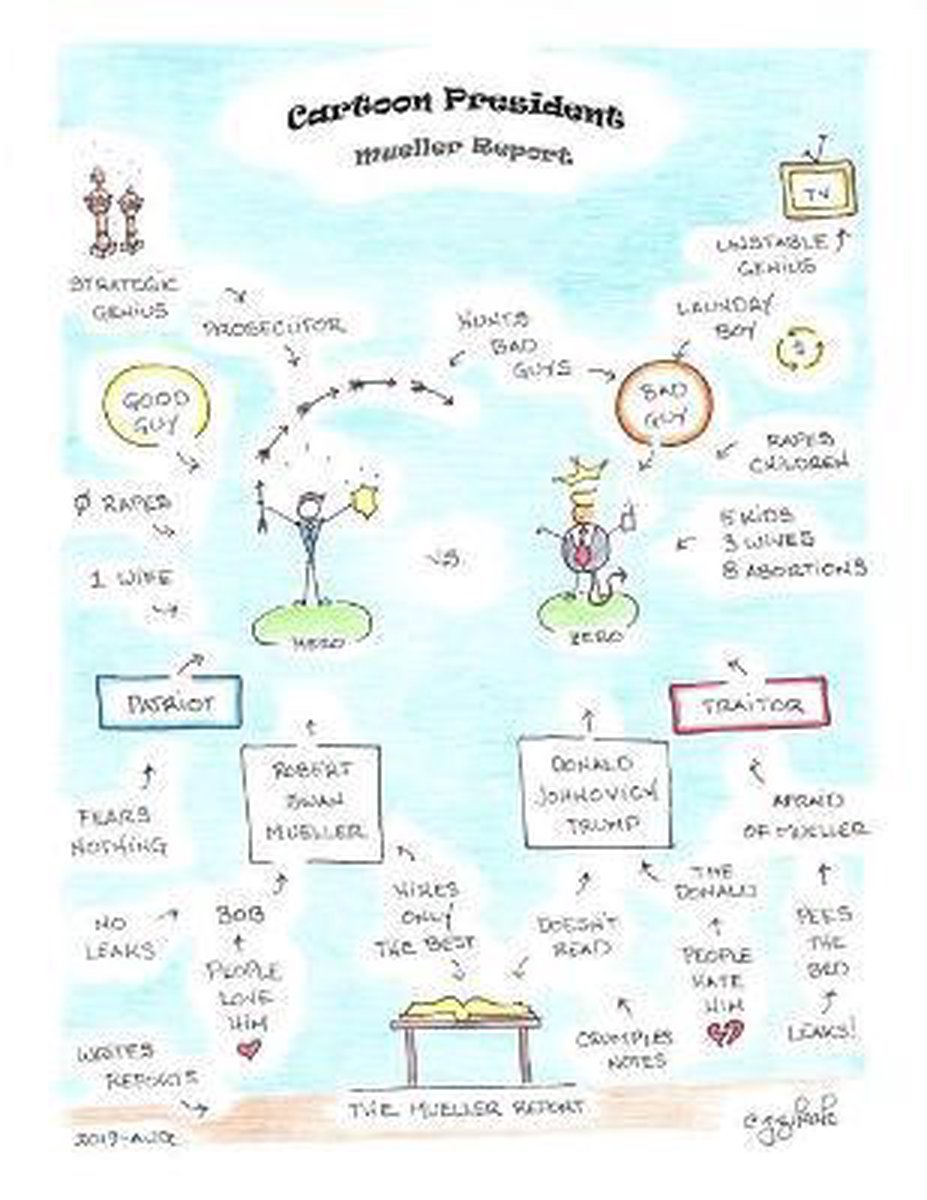 Cartoon President
Mueller Report
TV
UNSTABLE
GENIUS
STRATEGIC
GENIUS
PROSECUTOR
HUNTS
BAD
GUYS
LAUNDRY
BOY
$
GOOD
GUY
BAD
GUY
RAPES
CHILDREN
Ø RAPES
1 WIFE
VS.
5 KIDS
3 WIVES
8 ABORTIONS
HERO
ZERO
PATRIOT
TRAITOR
ROBERT
SWAN
MUELLER
DONALD
JOHNOVICH
TRUMP
FEARS
NOTHING
AFRAID
OF MUELLER
NO
LEAKS
BOB
PEOPLE
LOVE
HIM
HIRES
ONLY
THE BEST
DOESN'T
READ
THE
DONALD
PEOPLE
HATE
HIM
PEES
THE
BED
LEAKS!
CRUMPLES
NOTES
WRITES
REPORTS
THE MUELLER REPORT
2019-AUG